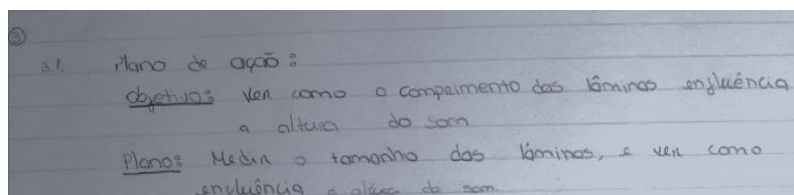 ③
3.1. Plano de ação:
Objetivo: Ver como o compeimento das lâminas enfluência
a altura do som
Plano: Medir o tamanho das lâminas, e ver como
enfluência a altura do som.